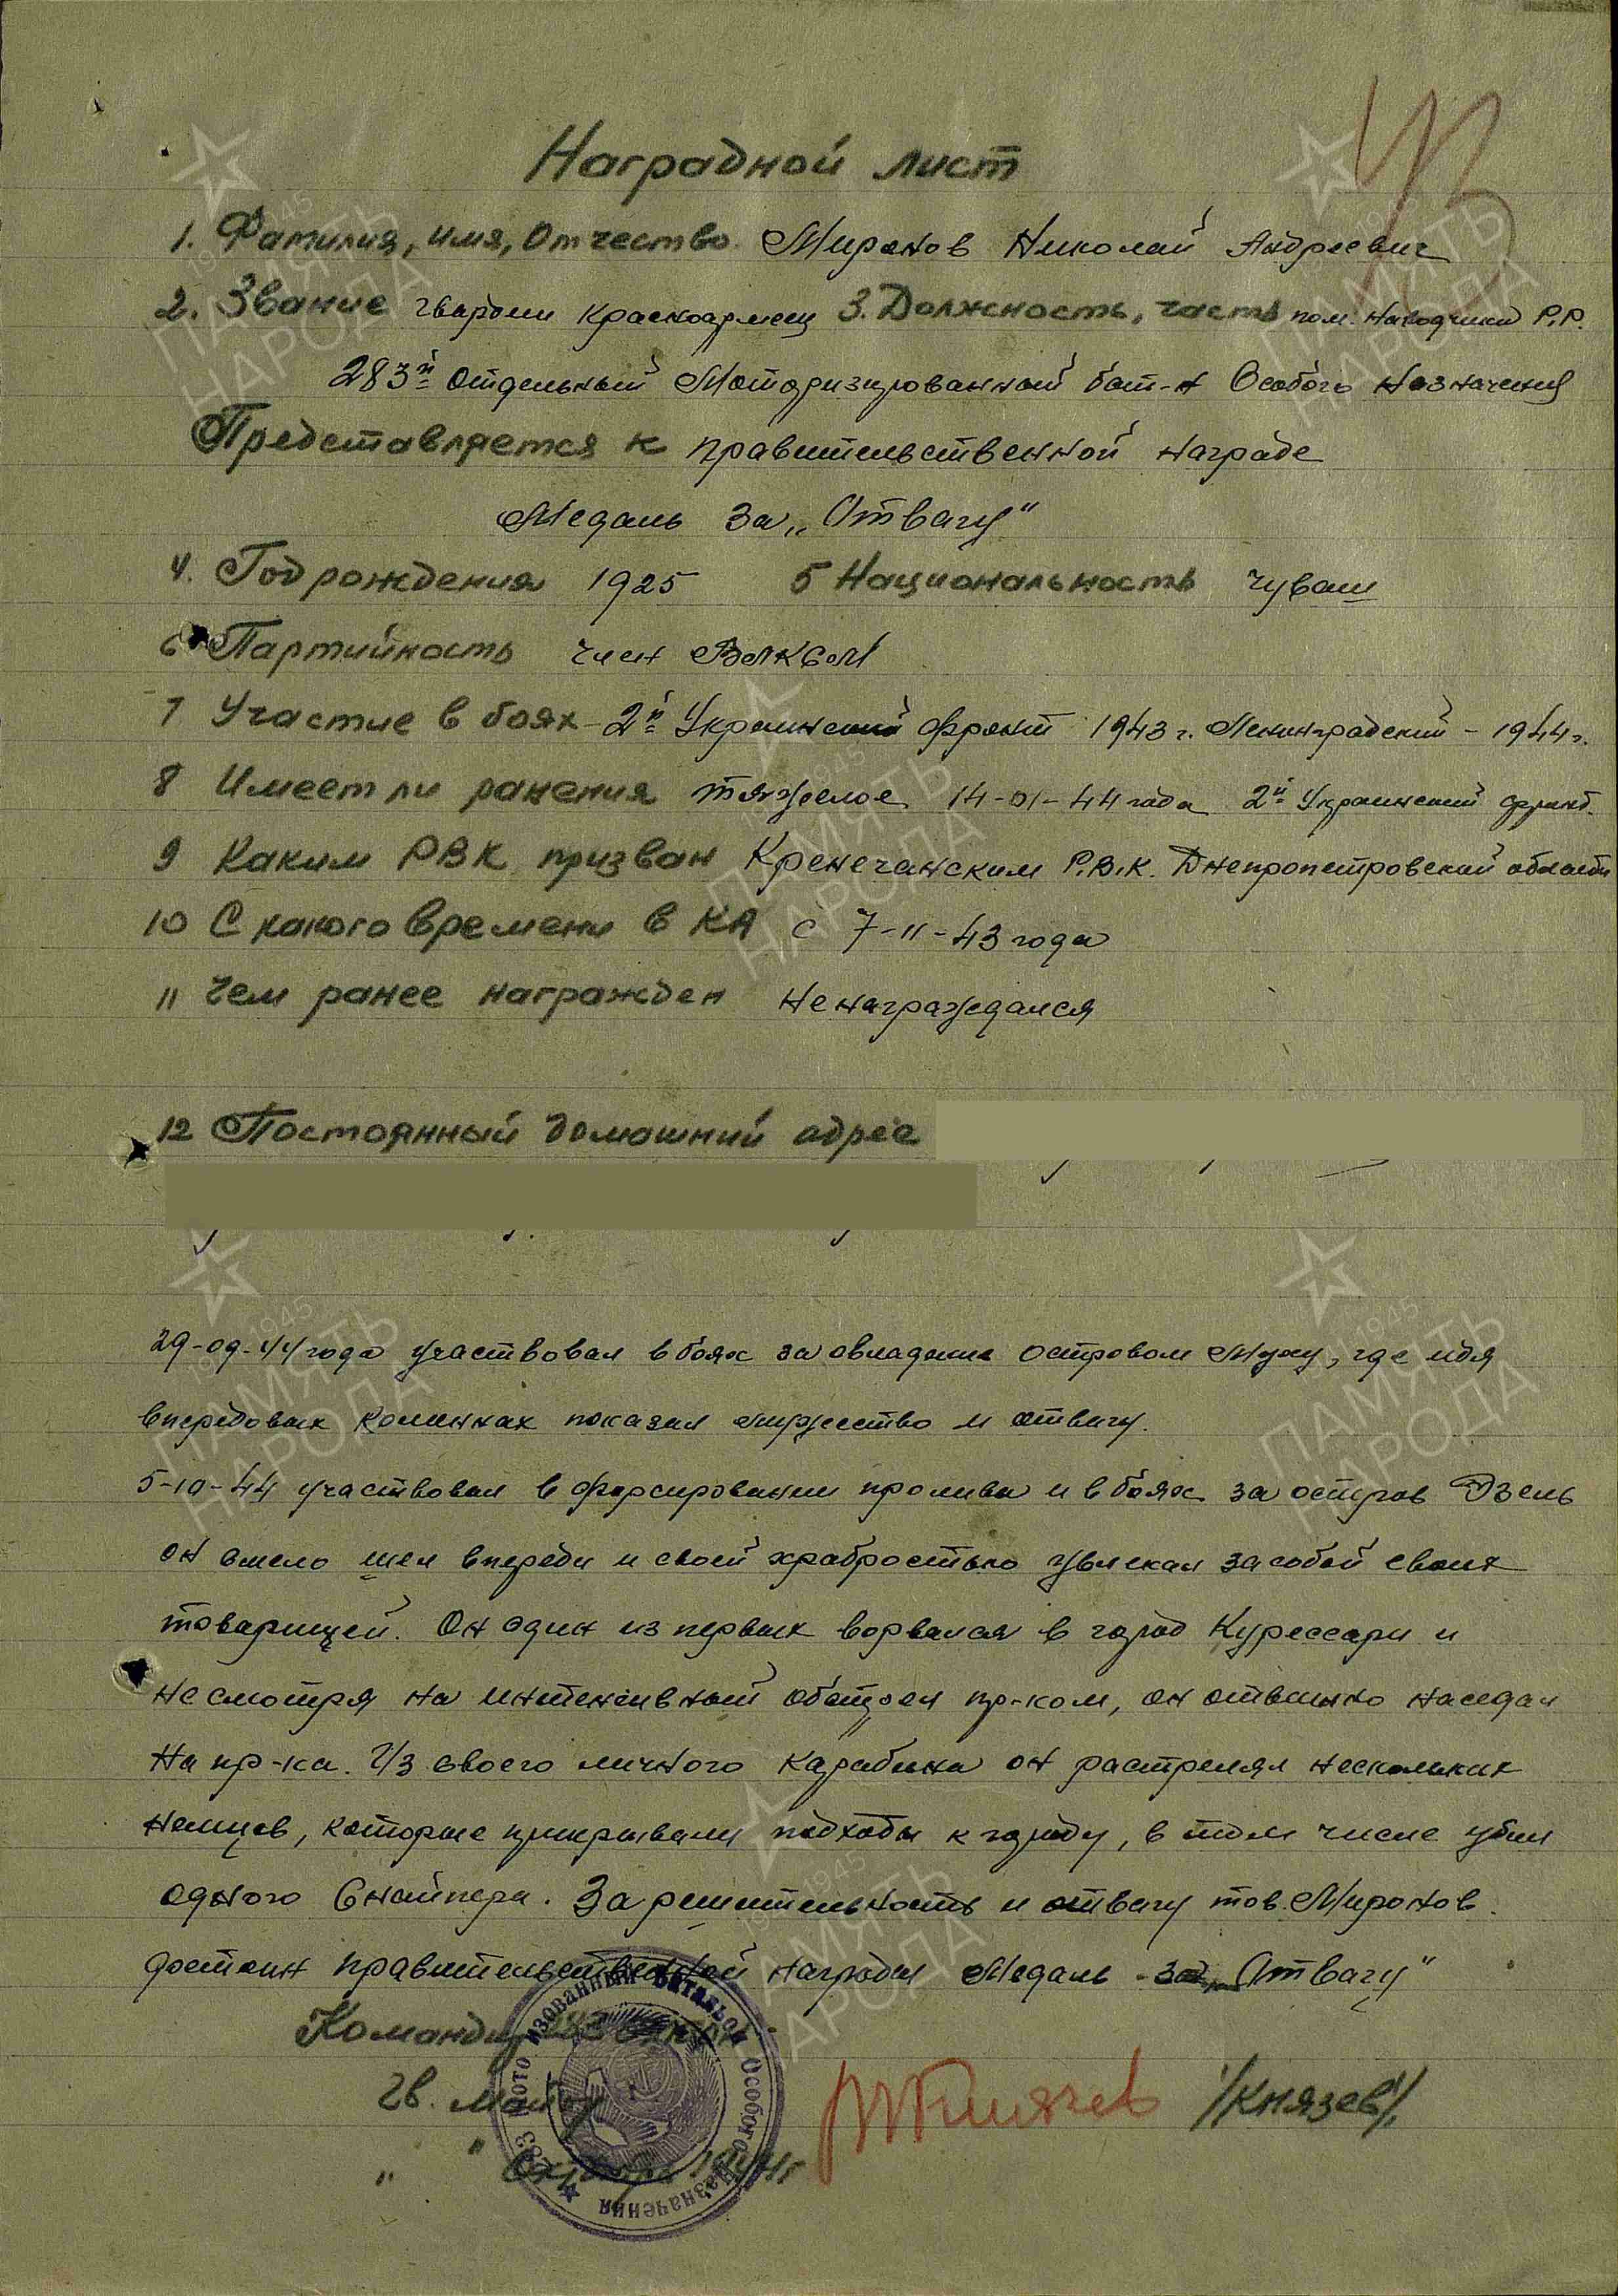 Наградной лист
1. Фамилия, имя, Отчество Миронов Николай Андреевич
2. Звание гвардии красноармеец 3. Должность, часть пом. наводчика Р.Р.
283й Отдельный Моторизированный бат-н Особого Назначения
Представляется к правительственной награде
Медаль За „Отвагу"
4. Год рождения 1925 5 Национальность чуваш
6 Партийность член ВЛКСМ
7 Участие в боях - 2й Украинский фронт 1943 г. Ленинградский - 1944 г.
8 Имеет ли ранения тяжелое 14-01-44 года 2й Украинский фронт.
9 Каким РВК призван Кренечанским Р.В.К. Днепропетровской области
10 С какого времени в КА с 7-11-43 года
11 Чем ранее награжден Не награждался
12 Постоянный домашний адрес
29-09-44 года участвовал в боях за овладение островом Муху, где идя
впередовых колоннах показал мужество и отвагу.
5-10-44 участвовал в форсировании пролива и в боях за остров Эзель
он смело шел впереди и своей храбростью увлекал за собой своих
товарищей. Он один из первых ворвался в город Курессари и
несмотря на интенсивный обстрел пр-ком, он отважно наседал
на пр-ка. Из своего личного карабина он растрелял нескольких
немцев, которые прикрывали подходы к городу, в том числе убил
одного Снайпера. За решительность и отвагу тов. Миронов
достоин правительственной награды Медаль за „Отвагу"
Командир 283
гв. майор /Князев/
" " Октября 1944 г
283 Мото изованный Батальон Особого Назначения
ПАМЯТЬ НАРОДА
1945